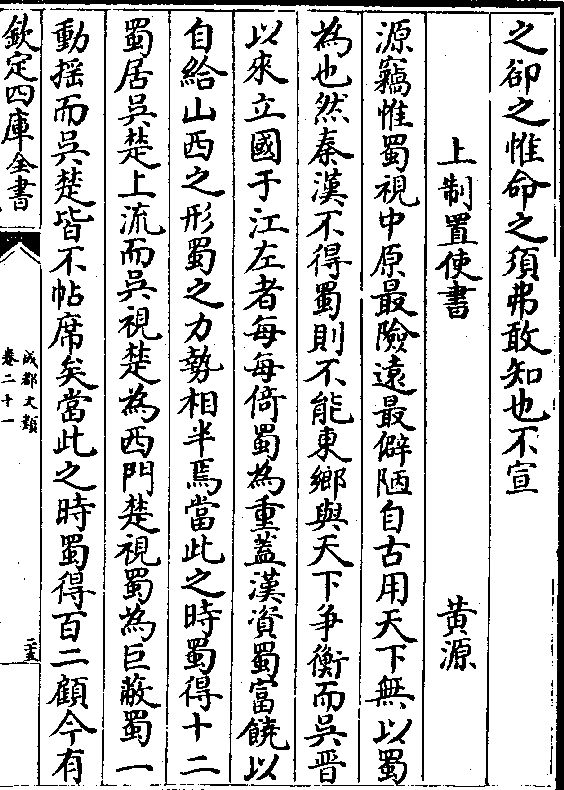 之卻之惟命之須弗敢知也不宣
上制置使書　黄源
源竊惟蜀視中原最險遠最僻陋自古用天下無以蜀
為也然秦漢不得蜀則不能東鄉與天下争衡而吳晉
以來立國于江左者每每倚蜀為重蓋漢資蜀富饒以
自給山西之形蜀之力勢相半焉當此之時蜀得十二
蜀居吳楚上流而吳視楚為西門楚視蜀為巨蔽蜀一
動揺而吳楚皆不帖席矣當此之時蜀得百二顧今有
欽定四庫全書
成都文類
卷二十一
二十五